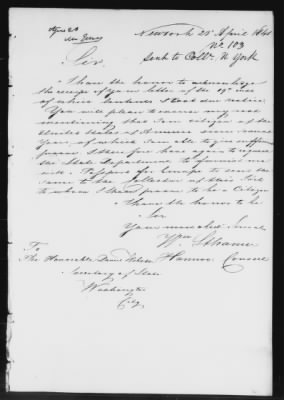 New York 25 April 1841
No 103
Sent to Collr. N York
Sir.
I have the honor to acknowledge
the receipt of your letter of the 19th inst
of which contents I took due notice.
You will please to excuse my not
mentioning that I am citizen of the
United States of America since some
Years, of which I am able to give
proove. I therefore have again to
the State Department to furnish me
with
same to the Collector of this Port
to whom I shall proove to be a Citizen
I have the honor to be
Sir
Your most obed. Servt.
To
The Honorable Daniel Webster
Hannov. Consul
Secretary of State
Washington
City